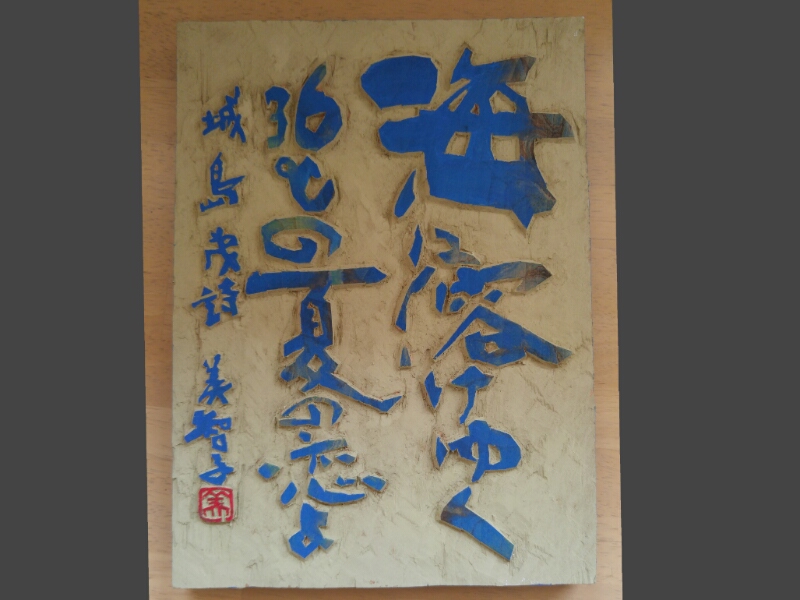 海に溶けゆく
36℃の夏の恋よ
城島茂詩 美智子
美